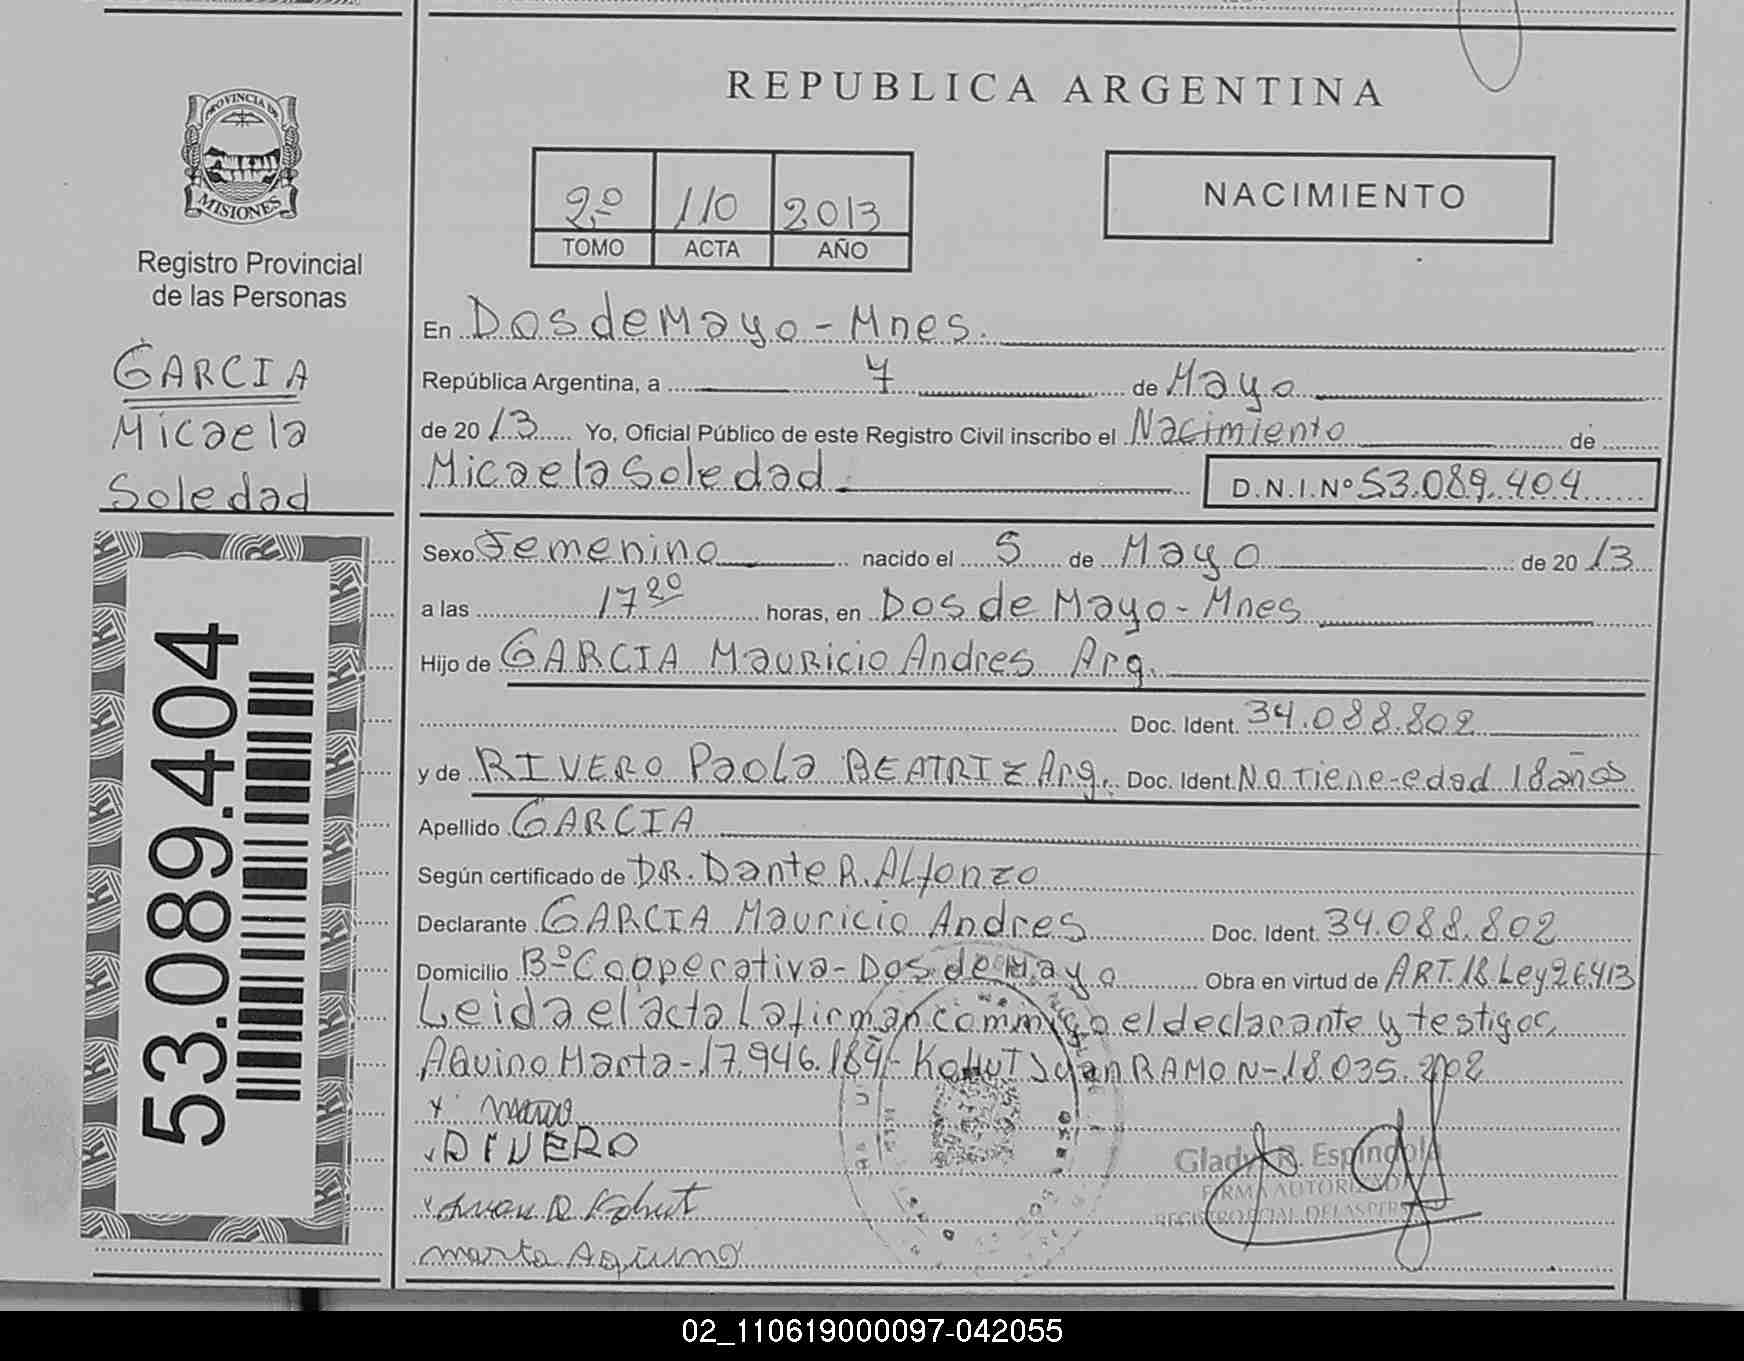 REPUBLICA ARGENTINA
PROVINCIA DE
MISIONES
Registro Provincial
de las Personas
GARCIA
Micaela
Soledad
53.089.404
2º 110 2013
TOMO ACTA AÑO
NACIMIENTO
En Dos de Mayo - Mnes.
República Argentina, a 7 de Mayo
de 2013 Yo, Oficial Público de este Registro Civil inscribo el Nacimiento de
Micaela Soledad D.N.I.Nº 53.089.404
Sexo Femenino nacido el 5 de Mayo de 2013
a las 17 20 horas, en Dos de Mayo - Mnes
Hijo de GARCIA Mauricio Andres Arg.
Doc. Ident. 34.088.802
y de RIVERO Paola BEATRIZ Arg. Doc. Ident. No Tiene - edad 18 años
Apellido GARCIA
Según certificado de DR. Dante R. Alfonzo
Declarante GARCIA Mauricio Andres Doc. Ident. 34.088.802
Domicilio Bº Cooperativa - Dos de Mayo Obra en virtud de ART. 18 Ley 26413
Leida el acta la firman conmigo el declarante y testigos
Aquino Marta - 17.946.184 - KOHUT Juan RAMON - 18.035.202
RIVERO
Juan R Kohut
marta Aquino
Gladys R. Espindola
FIRMA AUTORIZADA
REGISTRO PCIAL. DE LAS PERS.
02_110619000097-042055